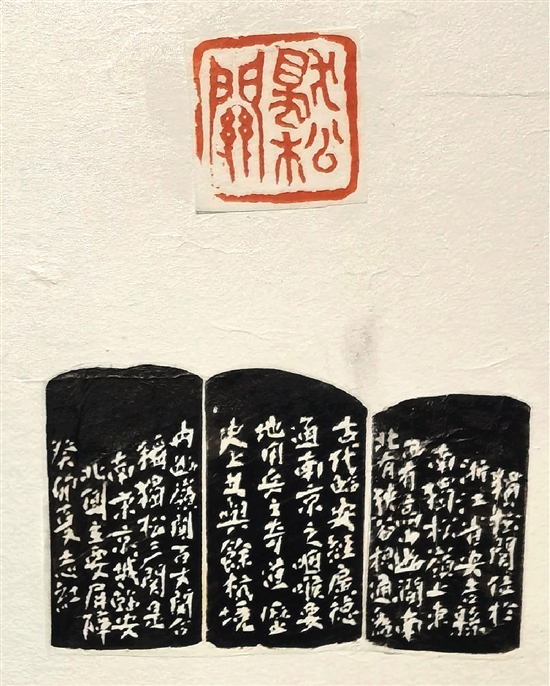 獨松關
獨松關位於
浙江省安吉縣
南獨松嶺上東
西有高山幽澗南
北有狹谷相通為
古代臨安經廣德
通南京之咽喉要
地用兵之奇道歷
史上且與餘杭境
内幽嶺關百丈關合
稱獨松三關是
南宋京城臨安
北側主要屏障
癸卯夏志紅